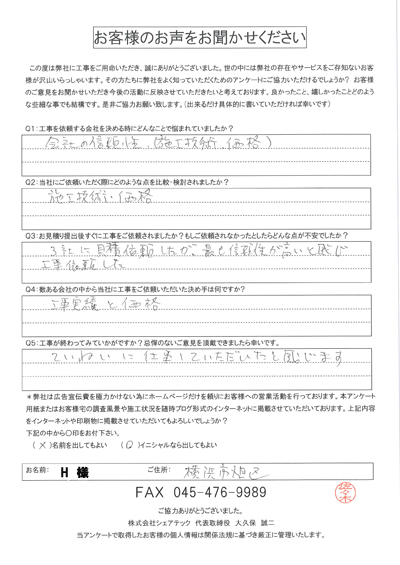 お客様のお声をお聞かせください
この度は弊社に工事をご用命いただき、誠にありがとうございました。世の中には弊社の存在やサービスをご存知ないお客
様が沢山いらっしゃいます。その方たちに弊社をよく知っていただくためのアンケートにご協力いただけるでしょうか？ お客様
のご意見をお聞かせいただき今後の活動に反映させていただきたいと考えております。良かったこと、嬉しかったことどのよう
な些細な事でも結構です。是非ご協力お願い致します。（出来るだけ具体的に書いていただければ幸いです）
Q1：工事を依頼する会社を決める時にどんなことで悩まれていましたか？
会社の信頼性（施工技術、価格）
Q2：当社にご依頼いただく際にどのような点を比較・検討されましたか？
施工技術・価格
Q3：お見積り提出後すぐに工事をご依頼されましたか？もしご依頼されなかったとしたらどんな点が不安でしたか？
3社に見積依頼したが、最も信頼性が高いと感じ
工事依頼した
Q4：数ある会社の中から当社に工事をご依頼いただいた決め手は何ですか？
工事実績と価格
Q5：工事が終わってみていかがですか？忌憚のないご意見を頂戴できましたら幸いです。
ていねいに仕事していただいたと感じます
＊弊社は広告宣伝費を極力かけない為にホームページだけを頼りにお客様への営業活動を行っております。本アンケート
用紙またはお客様宅の調査風景や施工状況を随時ブログ形式のインターネットに掲載させていただいております。上記内容
をインターネットや印刷物に掲載させていただいてもよろしいでしょうか？
下記の中から〇印をお付下さい。
（ × ）名前を出してもよい （ O ）イニシャルなら出してもよい
お名前： H 様 ご住所： 横浜市旭区
FAX 045-476-9989
ご協力ありがとうございました。
株式会社シェアテック 代表取締役 大久保 誠二
当アンケートで取得したお客様の個人情報は関係法規に基づき厳正に管理いたします。